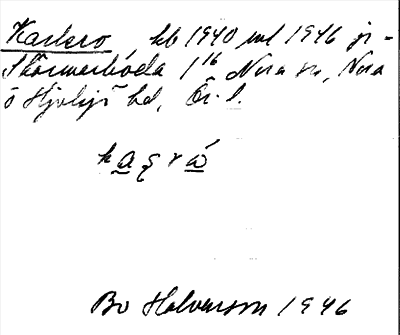 Karlsro, kb 1940 ml 1946 ji-
Skärmarboda 1¹⁶ Nora sn, Nora
o Hjulsjö bd, Ör. l.
kagrå
Bo Halvarson 1946